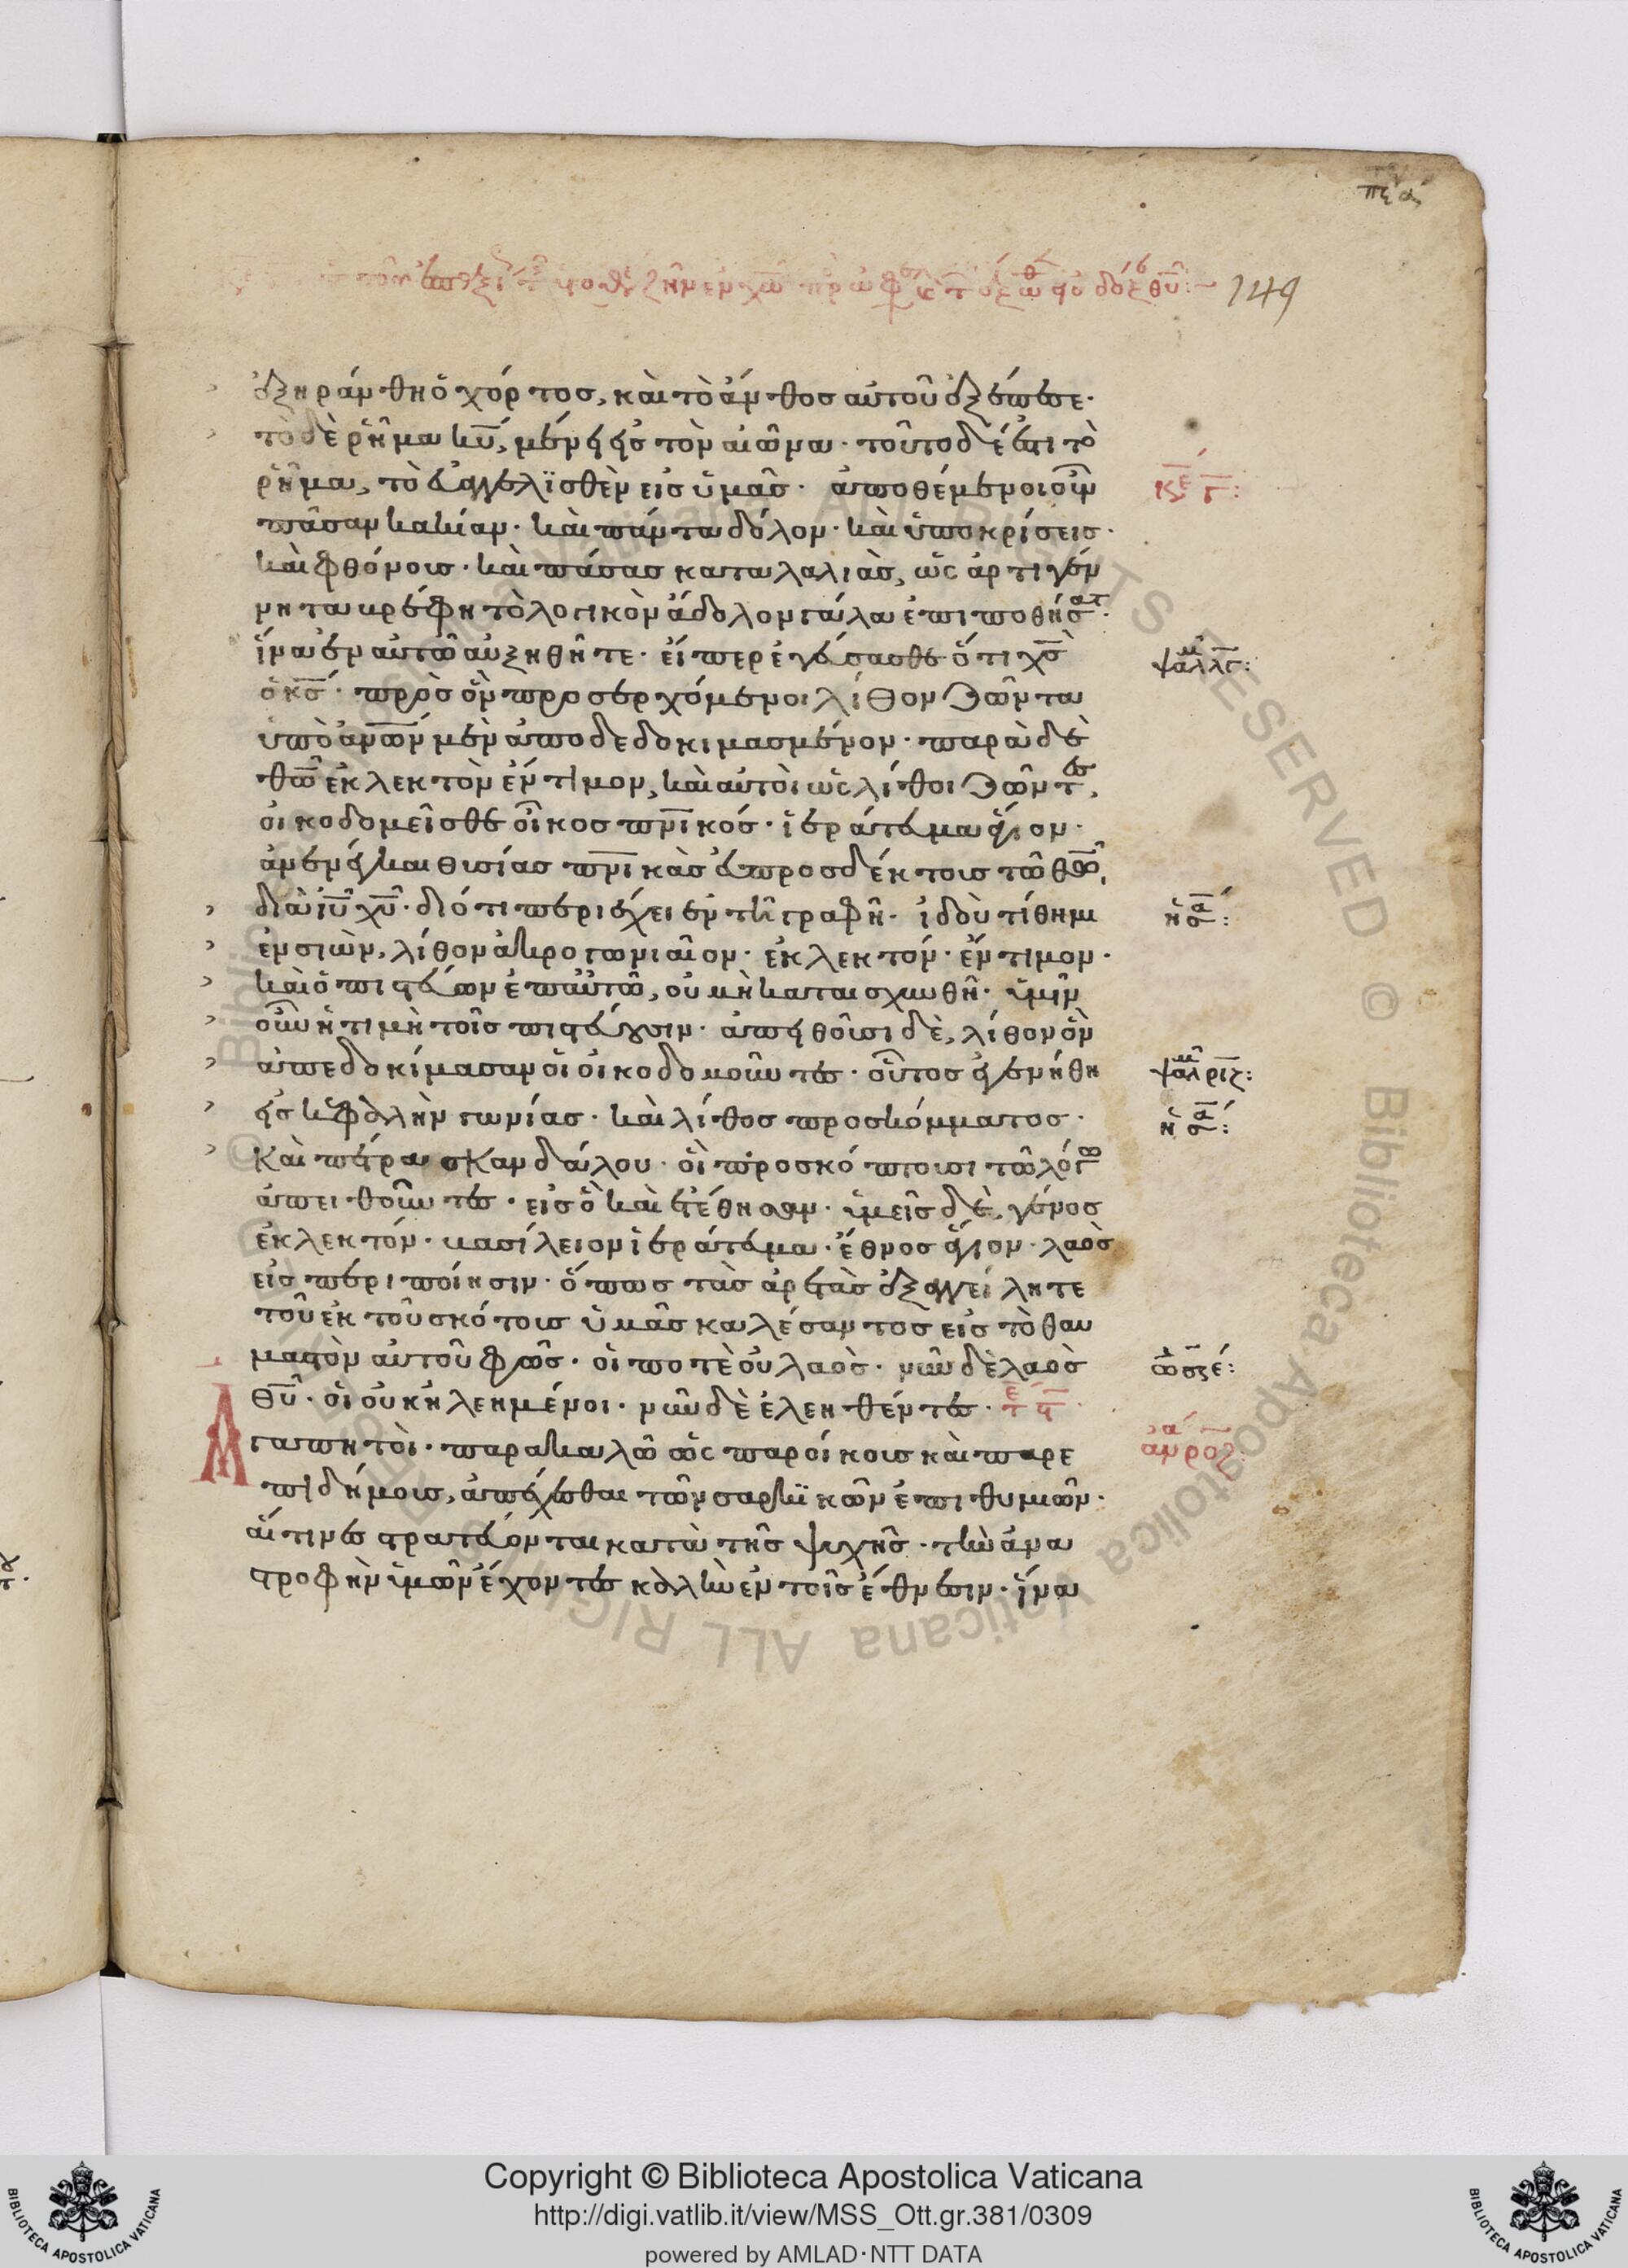 149
ἐξηράνθη ὁ χόρτος, καὶ τὸ ἄνθος αὐτοῦ ἐξέπεσε·
τὸ δὲ ῥῆμα κυ, μένει εἰς τὸν αἰῶνα· τοῦτο δέ ἐστι τὸ
ῥῆμα, τὸ εὐαγγελϊσθὲν εἰς ὑμᾶς· ἀποθέμενοι οὖν
πᾶσαν κακίαν· καὶ πάντα δόλον· καὶ ὑποκρίσεις·
καὶ φθόνους· καὶ πάσας καταλαλιὰς, ὡς ἀρτιγέν
νητα βρέφη τὸ λογικὸν ἄδολον γάλα ἐπιποθήσατ·
ἵνα ἐν αὐτῶ αὐξηθῆτε· εἴπερ ἐγεύσασθε ὅτι χς
ὁ κς· πρὸς ὃν προσερχόμενοι λίθον ζῶντα
ὑπὸ ἀνων μὲν ἀποδεδοκιμασμένον· παρὰ δὲ
θω ἐκλεκτὸν ἔντιμον, καὶ αὐτοὶ ὡς λίθοι ζῶντες,
οἰκοδομεῖσθε οἶκος πνικός· ἱεράτευμα ἅγιον·
ἀνενέγκαι θυσίας πνικὰς εὐπροσδέκτους τῶ θω,
διὰ ιυ χυ· διότι περιέχει ἐν τῆ γραφῆ· ἰδοὺ τίθημι
ἐν σιὼν, λίθον ἀκρογωνιαῖον· ἐκλεκτόν· ἔντιμον·
καὶ ὁ πιστεύων ἐπ αὐτῶ, οὐ μὴ καταισχυνθῆ· ὑμῖν
οὖν ἡ τιμὴ τοῖς πιστεύουσιν· ἀπειθοῦσι δὲ, λίθον ὃν
ἀπεδοκίμασαν οἱ οἰκοδομοῦντες· οὗτος ἐγενήθη
εἰς κεφαλὴν γωνίας· καὶ λίθος προσκόμματος·
Καὶ πέτρα σκανδάλου· οἳ προσκόπτουσι τῶ λόγω
ἀπειθοῦντες· εἰς ὃ καὶ ἐτέθησαν· ὑμεῖς δὲ, γένος
ἐκλεκτόν· βασίλειον ἱεράτευμα· ἔθνος ἅγιον· λαὸς
εἰς περιποίησιν· ὅπως τὰς ἀρετὰς ἐξαγγείλητε
τοῦ ἐκ τοῦ σκότους ὑμᾶς καλέσαντος εἰς τὸ θαυ
μαστὸν αὐτοῦ φῶς· οἱ ποτὲ οὐ λαὸς· νῦν δὲ λαὸς
θυ· οἱ οὐκ ἠλεημένοι· νῦν δὲ ἐλεηθέντες·
Αγαπητοὶ· παρακαλῶ ὡς παροίκους καὶ παρε
πιδήμους, ἀπέχεσθαι τῶν σαρκϊκῶν ἐπιθυμιῶν·
αἵτινες στρατεύονται κατὰ τῆς ψυχῆς· τὴν ἀνα
στροφὴν ὑμῶν ἔχοντες καλὴν ἐν τοῖς ἔθνεσιν· ἵνα
Copyright © Biblioteca Apostolica Vaticana
http://digi.vatlib.it/view/MSS_Ott.gr.381/0309
powered by AMLAD·NTT DATA